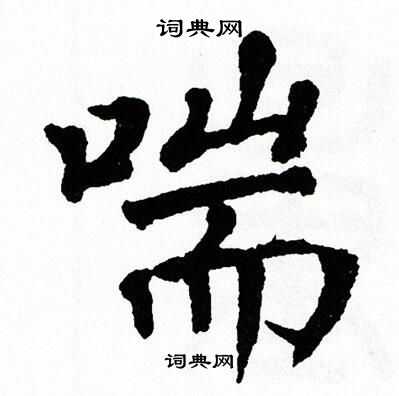 词典网
喘
词典网